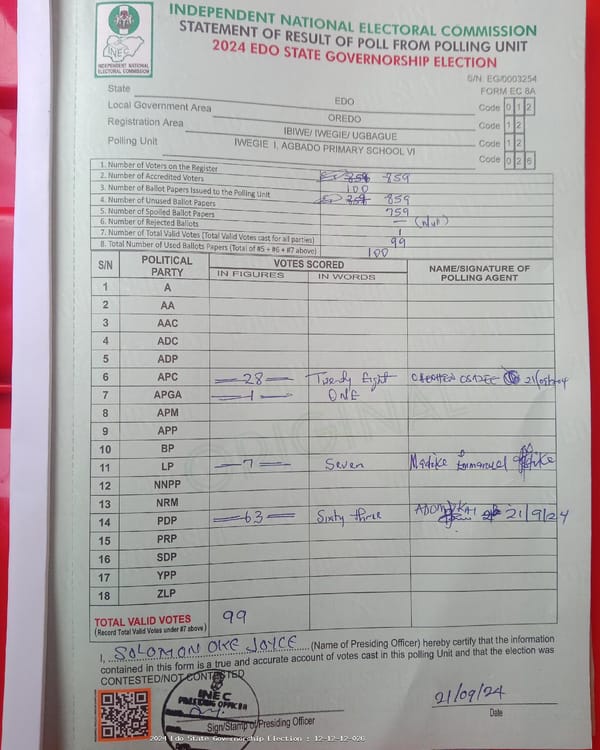 INDEPENDENT NATIONAL ELECTORAL COMMISSION
STATEMENT OF RESULT OF POLL FROM POLLING UNIT
2024 EDO STATE GOVERNORSHIP ELECTION
INEC
INDEPENDENT NATIONAL
ELECTORAL COMMISSION
S/N: EG/0003254
FORM EC 8A
State EDO Code 0 1 2
Local Government Area OREDO Code 1 2
Registration Area IBIWE/ IWEGIE/ UGBAGUE Code 1 2
Polling Unit IWEGIE I, AGBADO PRIMARY SCHOOL VI Code 0 2 6
1. Number of Voters on the Register 859
2. Number of Accredited Voters 100
3. Number of Ballot Papers Issued to the Polling Unit 859
4. Number of Unused Ballot Papers 759
5. Number of Spoiled Ballot Papers — (Null)
6. Number of Rejected Ballots 1
7. Number of Total Valid Votes (Total Valid Votes cast for all parties) 99
8. Total Number of Used Ballots Papers (Total of #5 + #6 + #7 above) 100
S/N POLITICAL PARTY VOTES SCORED NAME/SIGNATURE OF POLLING AGENT
IN FIGURES IN WORDS
1 A
2 AA
3 AAC
4 ADC
5 ADP
6 APC 28 Twenty Eight
7 APGA 1 ONE
8 APM
9 APP
10 BP
11 LP 7 Seven Emmanuel
12 NNPP
13 NRM
14 PDP 63 Sixty three 21/9/24
15 PRP
16 SDP
17 YPP
18 ZLP
ORIGINAL
TOTAL VALID VOTES 99
(Record Total Valid Votes under #7 above)
I, SOLOMON OKE JOYCE (Name of Presiding Officer) hereby certify that the information
contained in this form is a true and accurate account of votes cast in this polling Unit and that the election was
CONTESTED/NOT CONTESTED
INEC
PRESIDING OFFICER
Sign/Stamp of Presiding Officer
21/09/24
Date
2024 Edo State Governorship Election : 12-12-12-026